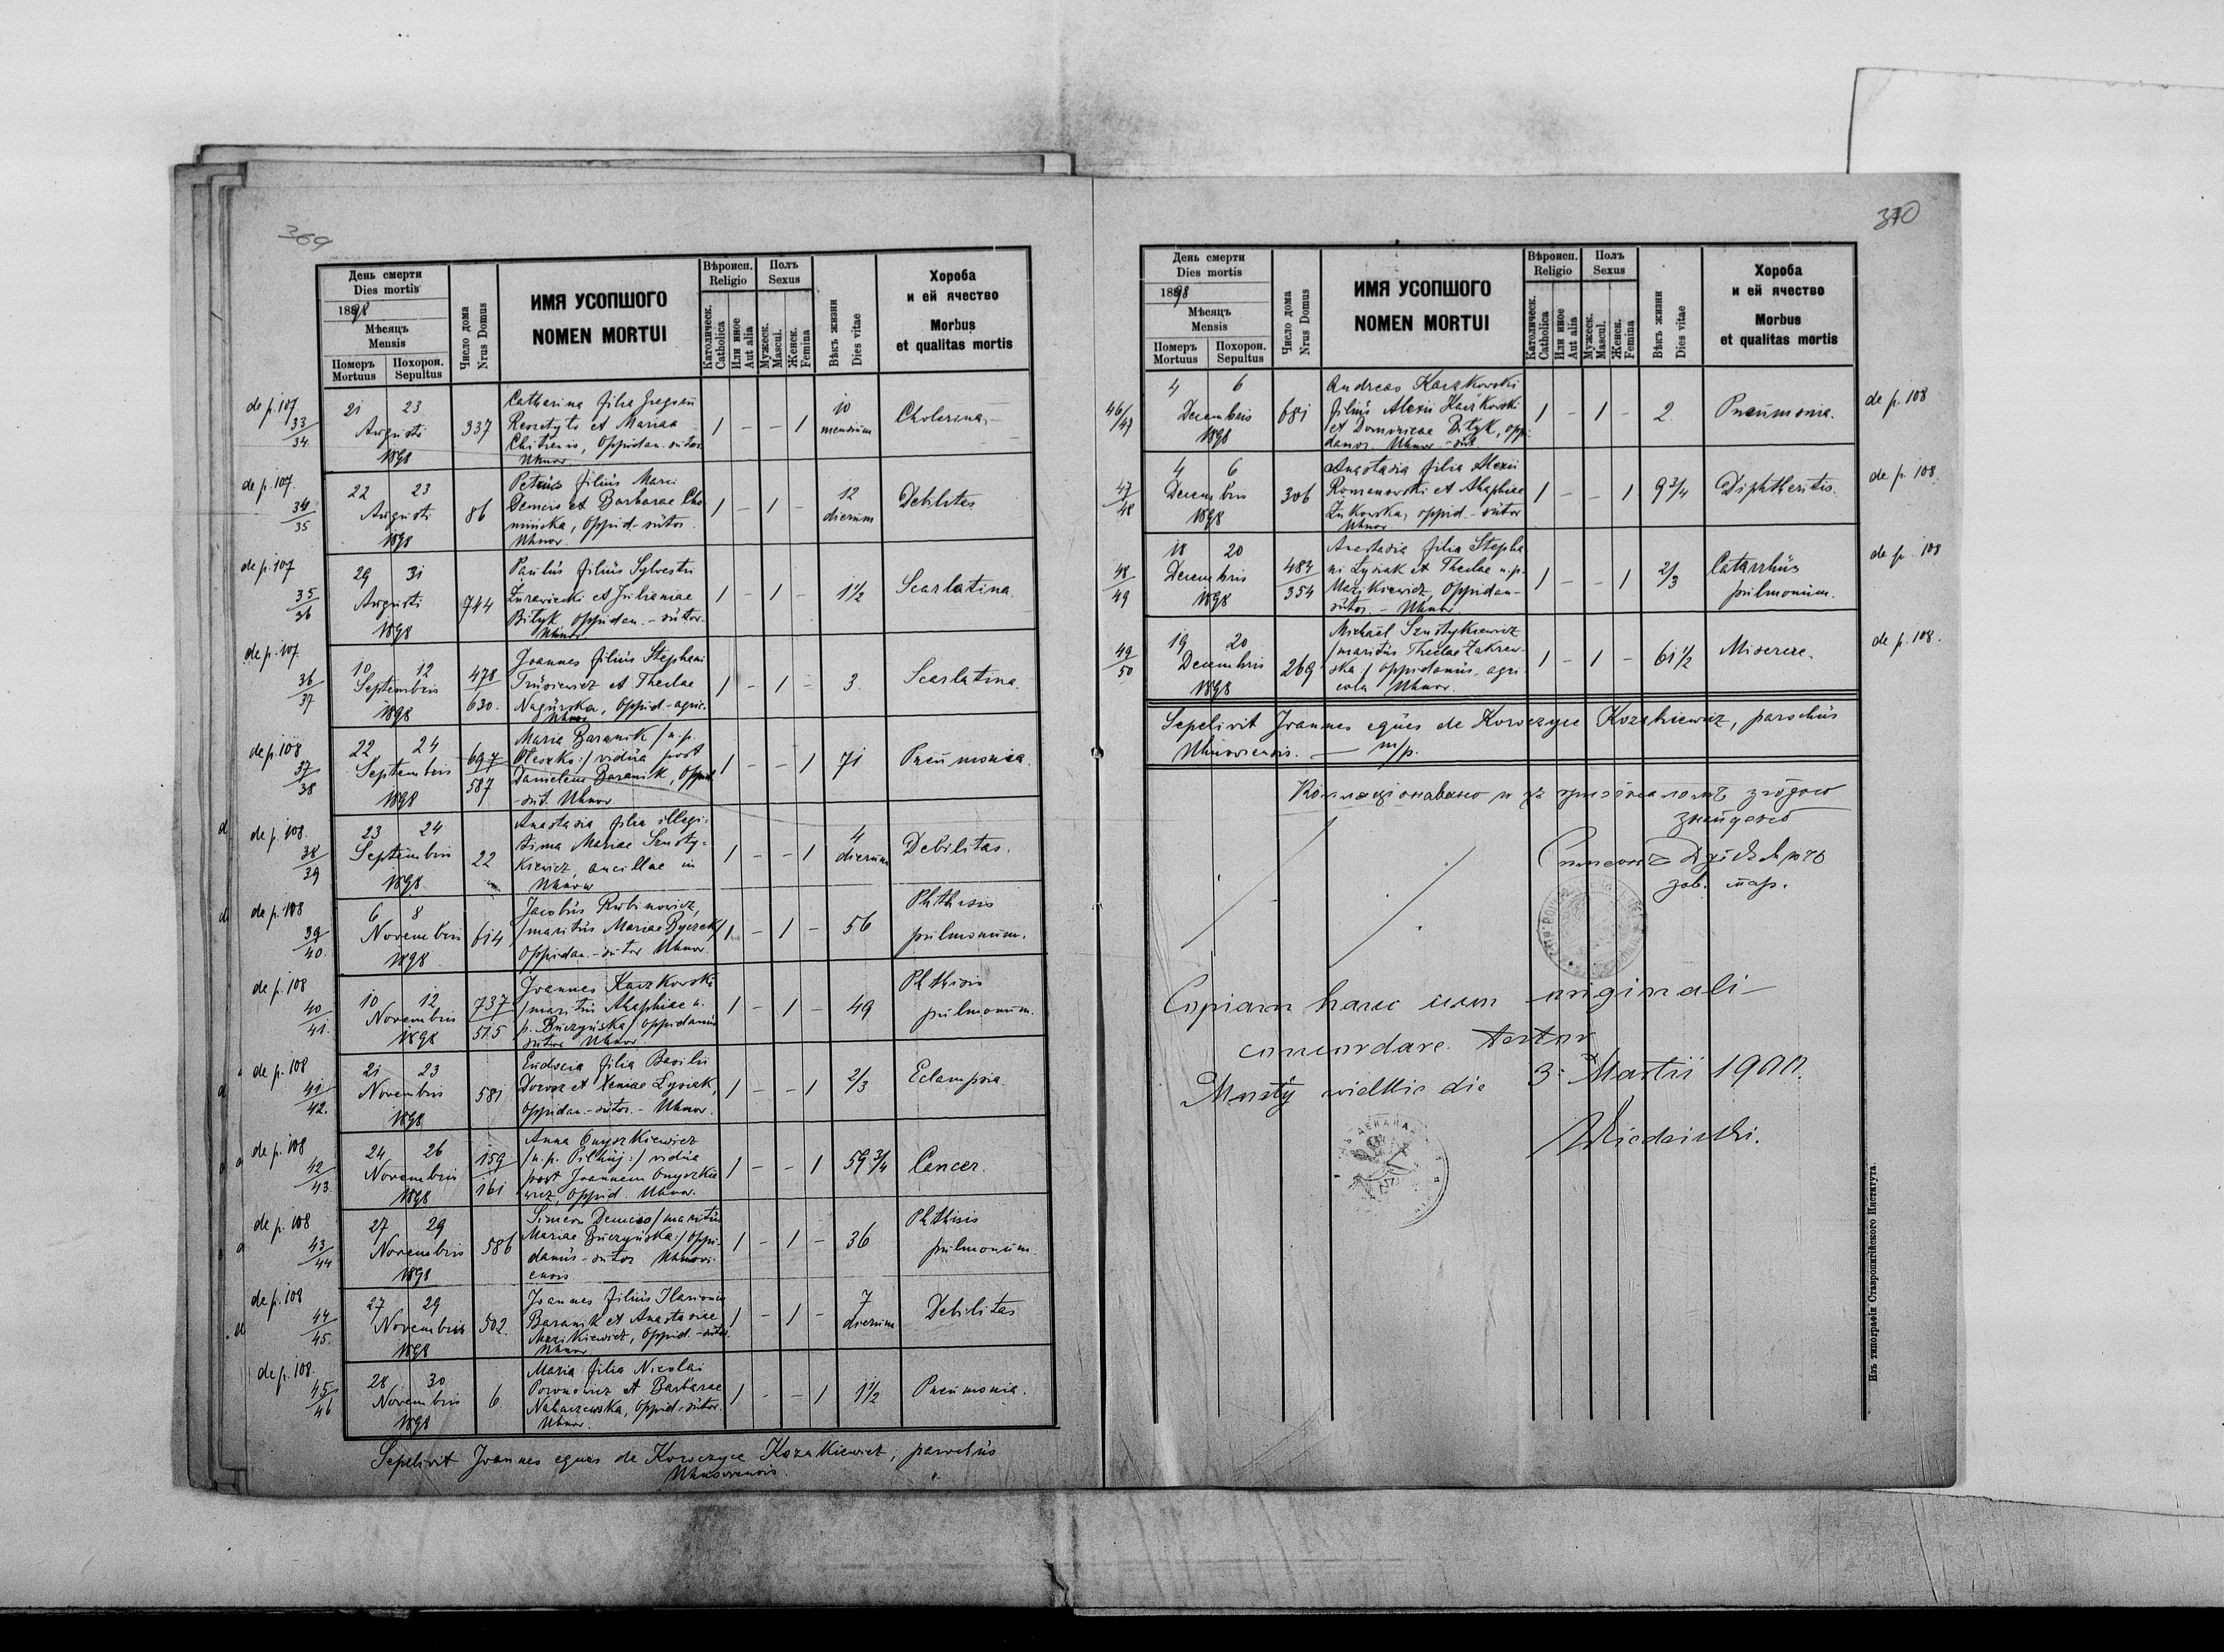 369
День смерти
Dies mortis
1898
Мѣсяць
Mensis
Померъ
Mortuus
Похорон.
Sepultus
Число дома
Nrus Domus
ИМЯ УСОПШОГО
NOMEN MORTUI
Вѣроисп.
Religio
Католическ.
Catholica
Или иное
Aut alia
Полъ
Sexus
Мужеск.
Mascul.
Женск.
Femina
Вѣкъ жизни
Dies vitae
Хороба
и ей ячество
Morbus
et qualitas mortis
de p. 107
33/34
21 23
Augusti
1898
337
Catharina filia Gregorii
et Mariae
Oppidan. sutor
Uhnov.
1 - - 1
10
mensium
Cholerina
de p. 107.
34/35
22 23
Augusti
1898
86
Petrus filius Marci
et Barbarae Cho
mińska, Oppid.-sutor.
Uhnov.
1 - 1 -
12
dierum
Debilitas
de p. 107
35/36
29 31
Augusti
1898
714
Paulus filius Sylvestri
Żurawiecki et Julianiae
Bityk, Oppidan. - sutor.
Uhnov
1 - 1 -
1 1/2
Scarlatina.
de p. 107.
36/37
10 12
Septembris
1898
478/630.
Joannes filius Stephani
Trusiewicz et Theclae
Nagurska, Oppid-agric.
Uhnov
1 - 1 -
3.
Scarlatina.
de p. 108
37/38
22 24
Septembris
1898
697/587
Maria Baranik /n. p.
Oleszko:/ vidua post
Danielem Baranik, Oppid.
- sut. Uhnov.
1 - - 1
71
Pneumonia.
de p. 108.
38/39
23 24
Septembris
1898
22
Anastasia filia illegi-
tima Mariae Sznoty-
kiewicz, ancillae in
Uhnow
1 - - 1
4
dierum
Debilitas.
de p. 108
39/40.
6 8
Novembris
1898
614
Jacobus Rubinowicz,
/maritus Mariae Byczek/
Oppidan.-sutor Uhnov.
1 - 1 -
56
Phthisis
pulmonum.
de p. 108
40/41.
10 12
Novembris
1898
737/515
Joannes Kaczkowski
/maritus Ahaphiae n.
p. Buczyńska/ oppidanus
sutor Uhnov.
1 - 1 -
49
Phthisis
pulmonum.
de p. 108
41/42.
21 23
Novembris
1898
581
Eudocia filia Basilii
et Xeniae Lysiak,
Oppidan.-sutor.- Uhnov.
1 - - 1
2/3
Eclampsia.
de p. 108
42/43.
24 26
Novembris
1898
159/161
Anna Onyszkiewicz
/n. p. vidua
post Joannem Onyszkie
wicz, Oppid. Uhnov.
1 - - 1
59 3/4
Cancer.
de p. 108
43/44
27 29
Novembris
1898
586
Simeon /maritus
Mariae Buczyńska:/ Oppi-
danus-sutor Uhnovi-
ensis
1 - 1 -
36
Phthisis
pulmonum.
de p. 108
44/45.
27 29
Novembris
1898
502.
Joannes filius Ilarionis
Baranik et Anastasiae
Mazikiewicz, Oppid.-sutor.
Uhnov
1 - 1 -
7
dierum
Debilitas
de p. 108.
45/46
28 30
Novembris
1898
6
Maria filia Nicolai
et Barbarae
Oppid.-sutor.
Uhnov.
1 - - 1
1 1/2
Pneumonia.
Sepelivit Joannes eques de Korczyce Kozakiewicz, parochus
Uhnoviensis.
370
День смерти
Dies mortis
1898
Мѣсяць
Mensis
Померъ
Mortuus
Похорон.
Sepultus
Число дома
Nrus Domus
ИМЯ УСОПШОГО
NOMEN MORTUI
Вѣроисп.
Religio
Католическ.
Catholica
Или иное
Aut alia
Полъ
Sexus
Мужеск.
Mascul.
Женск.
Femina
Вѣкъ жизни
Dies vitae
Хороба
и ей ячество
Morbus
et qualitas mortis
46/47
4 6
Decembris
1898
681
Andreas Kaczkowski
filius Alexii Kaczkowski
et Domnicae Bityk, opp-
danor. Uhnov - sut
1 - 1 -
2.
Pneumonia.
de p. 108
47/48
4 6
Decembris
1898
306
Anastasia filia Alexii
Romanowski et Ahaphiae
Żukowska, oppid.-sutor
Uhnov.
1 - - 1
9 3/4
Diphtheritis.
de p. 108.
48/49
18 20
Decembris
1898
484/354
Anastasia filia Stepha
ni Lysiak et Theclae n.p.
Mazikiewicz, Oppidan-
sutor. - Uhnov.
1 - - 1
2/3
Catarrhus
pulmonum.
de p. 108
49/50
19 20
Decembris
1898
269
Michaël Sznotykiewicz
/maritus Theclae Zakrew-
ska/ oppidanus, agri-
cola Uhnov.
1 - 1 -
61 1/2
Miserere.
de p. 108.
Sepelivit Joannes eques de Korczyce Kozakiewicz, parochus
Uhnoviensis. — m/p.
згôдно
знайдено
зав. пар.
Copiam hanc cum originali
concordare testor
Mosty wielkie die 3. Martii 1900.
Изъ типографіи Ставропигійского Института.